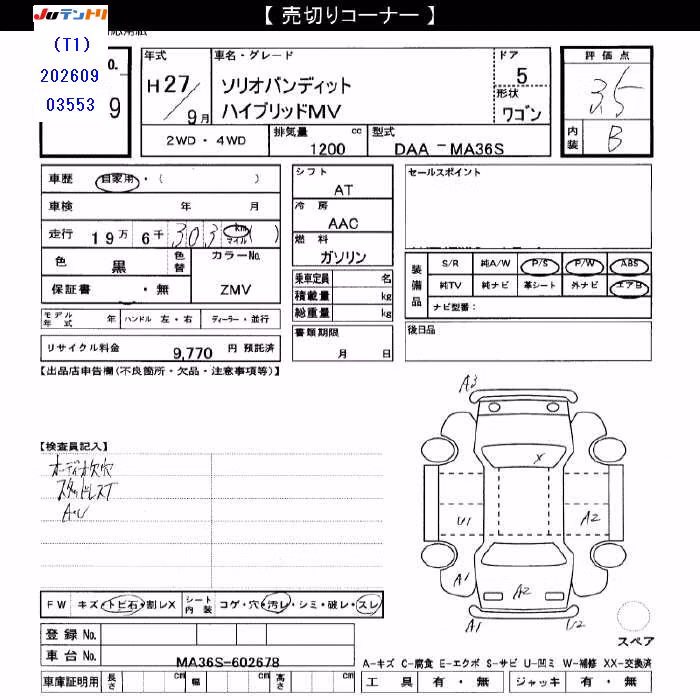 【 売切りコーナー 】
JUテントリ
(T1)
202609
03553
o.
9
年式
H27/9月
車名・グレード
ソリオバンディット
ハイブリッドMV
ドア
5
形状
ワゴン
評価点
3.5
内装
B
2WD・4WD
排気量 cc
1200
型式
DAA－MA36S
車歴 自家用・( )
車検 年 月
走行 19万 6千 303 km マイル ( )
色 黒 色替
カラーNo.
ZMV
保証書 ・無
モデル年式 年 ハンドル 左・右 ディーラー・並行
リサイクル料金 9,770 円 預託済
シフト
AT
冷房
AAC
燃料
ガソリン
乗車定員 名
積載量 kg
総重量 kg
書類期限
月 日
セールスポイント
装備品
S/R 純A/W P/S P/W ABS
純TV 純ナビ 革シート 外ナビ エアB
ナビ型番：
後日品
【出品店申告欄(不良箇所・欠品・注意事項等)】
【検査員記入】
オーディオ欠穴
スタッドレスT
A・U
A3
X
U1
A2
A1
A2
A1
U2
スペア
FW キズ・トビ石・割レX
シート内装 コゲ・穴・汚レ・シミ・破レ・スレ
登録 No.
車台 No.
MA36S-602678
車庫証明用 長さ cm 幅 cm 高さ cm
A-キズ C-腐食 E-エクボ S-サビ U-凹ミ W-補修 XX-交換済
工具 有・無 ジャッキ 有・無